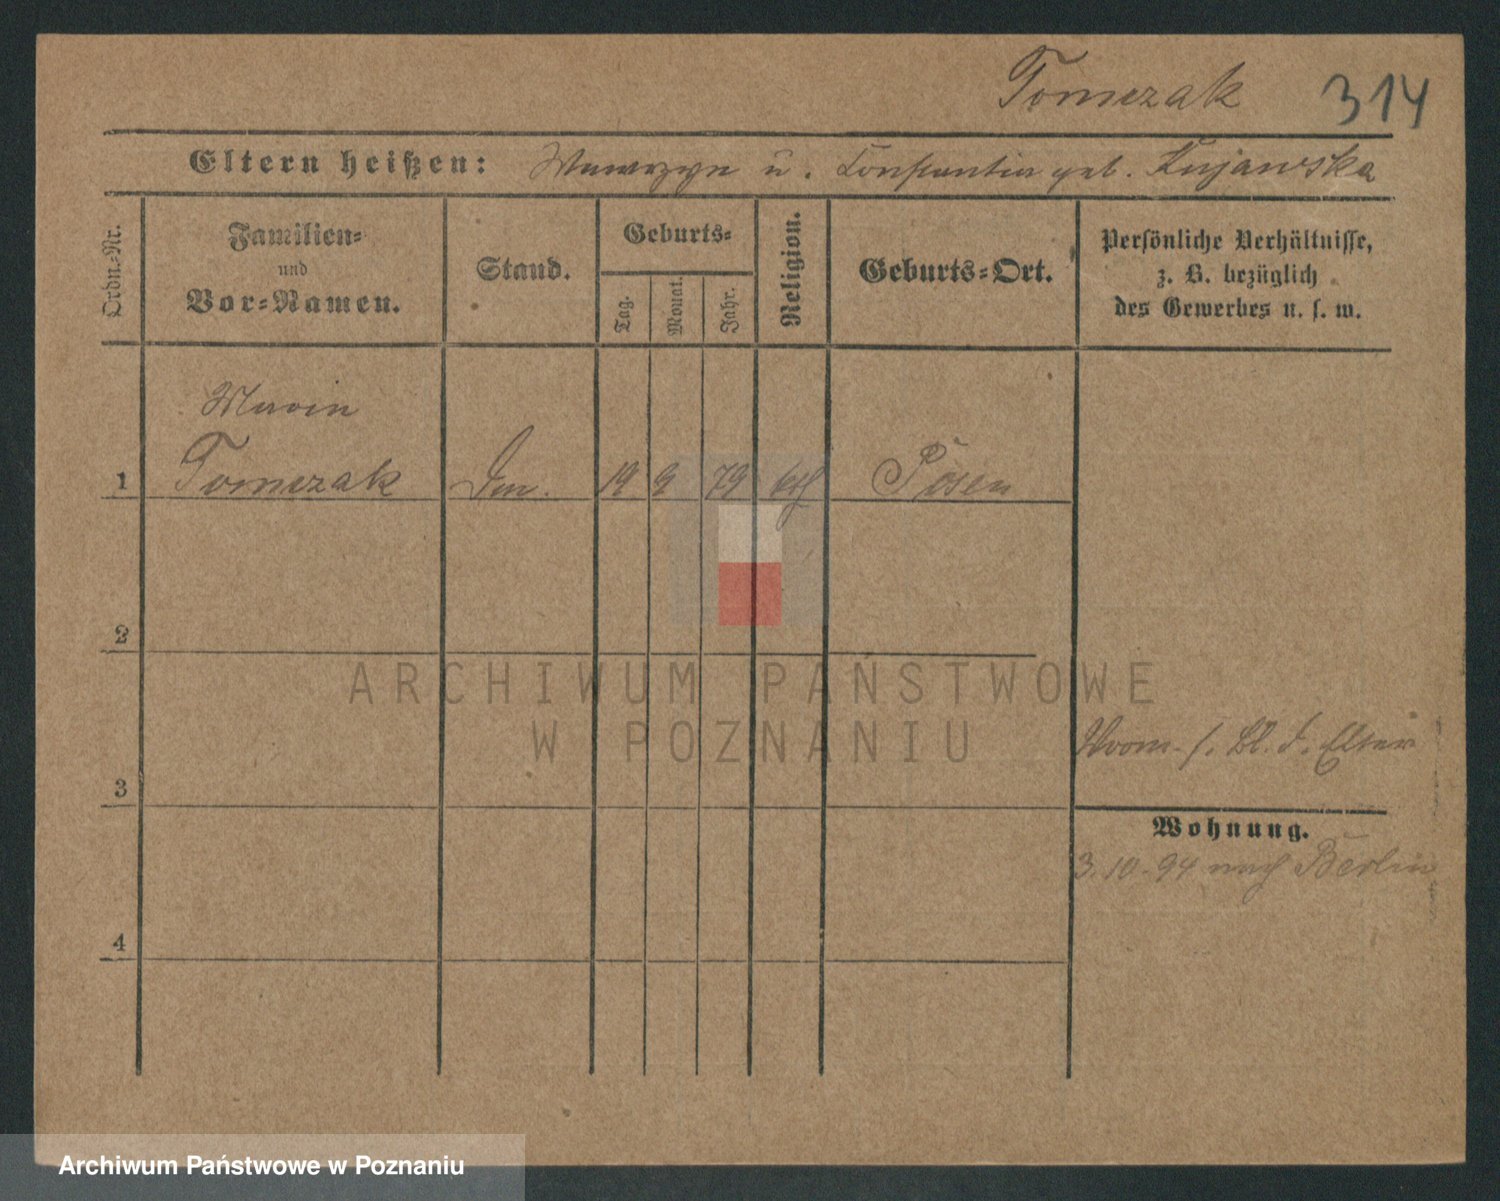 Tomczak 314
Eltern heißen: Wawrzyn u. Constantia geb. Kujawska
Ordn.-Nr.
Familien-
und
Vor-Namen.
Stand.
Geburts-
Tag.
Monat.
Jahr.
Religion.
Geburts-Ort.
Persönliche Verhältnisse,
z. B. bezüglich
des Gewerbes u. s. w.
Maria
1 Tomczak 19 9 79 kth Posen
2
ARCHIWUM PAŃSTWOWE
W POZNANIU
s. Bl. d. Elter
3
Wohnung.
3.10.94 nach Berlin
4
Archiwum Państwowe w Poznaniu